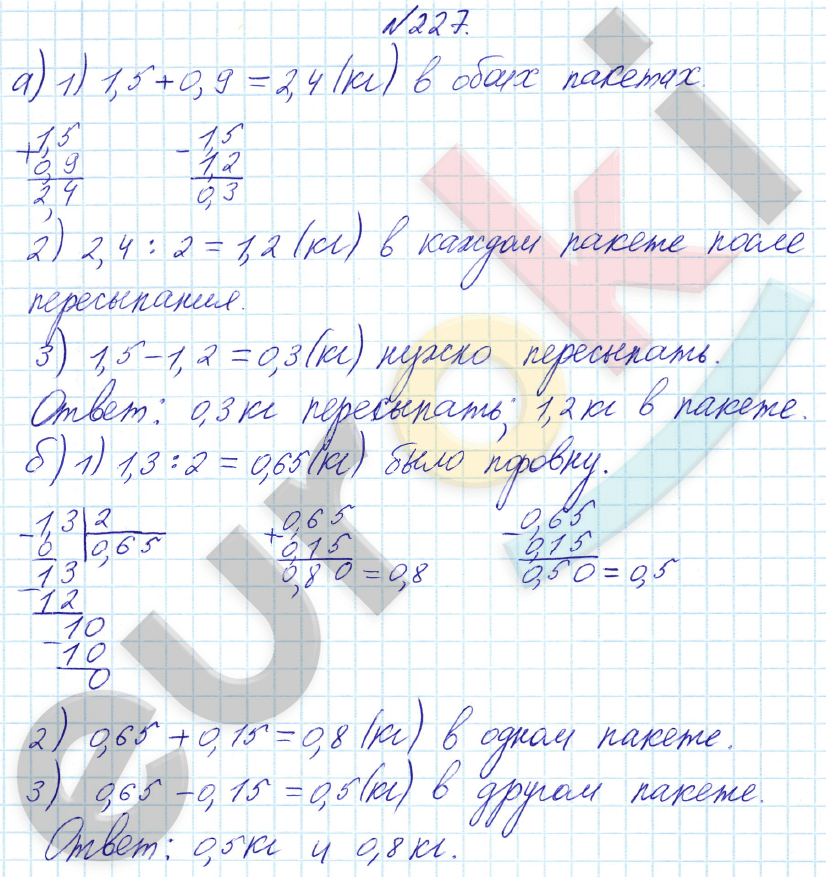 №227.
а) 1) 1,5 + 0,9 = 2,4 (кг) в обоих пакетах.
+ 1,5 - 1,5
0,9 1,2
2,4 0,3
2) 2,4 : 2 = 1,2 (кг) в каждом пакете после
пересыпания.
3) 1,5 - 1,2 = 0,3 (кг) нужно пересыпать.
Ответ: 0,3 кг пересыпать; 1,2 кг в пакете.
б) 1) 1,3 : 2 = 0,65 (кг) было поровну.
- 1,3 | 2 + 0,65 - 0,65
0 0,65 0,15 0,15
13 0,80 = 0,8 0,50 = 0,5
- 12
10
- 10
0
2) 0,65 + 0,15 = 0,8 (кг) в одном пакете.
3) 0,65 - 0,15 = 0,5 (кг) в другом пакете.
Ответ: 0,5 кг и 0,8 кг.
euroki